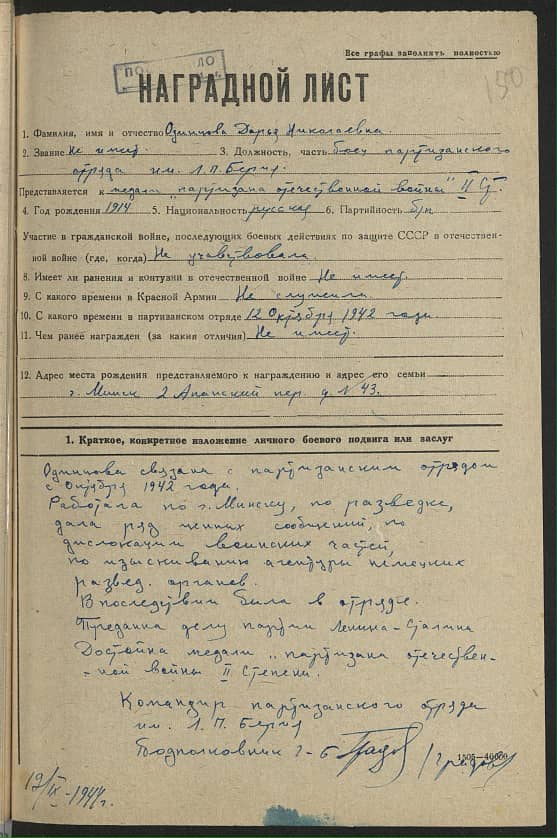 Все графы заполнить полностью
150
НАГРАДНОЙ ЛИСТ
1. Фамилия, имя и отчество Одинцова Дарья Николаевна
2. Звание Не имеет. 3. Должность, часть боец партизанского
отряда им. Л. П. Берия.
Представляется к медали "партизана отечественной войны" II Ст.
4. Год рождения 1914 5. Национальность русская 6. Партийность б/п
Участие в гражданской войне, последующих боевых действиях по защите СССР в отечествен-
ной войне (где, когда) Не участвовала.
8. Имеет ли ранения и контузии в отечественной войне Не имеет.
9. С какого времени в Красной Армии Не служила.
10. С какого времени в партизанском отряде 12 Октября 1942 года.
11. Чем ранее награжден (за какия отличия) Не имеет.
12. Адрес места рождения представляемого к награждению и адрес его семьи
г. Минск 2 Апанский пер. д. № 43.
1. Краткое, конкретное изложение личного боевого подвига или заслуг
Одинцова связана с партизанским отрядом
с Октября 1942 года.
Работала по г. Минску, по разведке,
дала ряд ценных сообщений, по
дислокации воинских частей,
по изысканию агентуры немецких
развед. органов.
В последствии была в отряде.
Преданна делу партии Ленина-Сталина
Достойна медали "партизана отечествен-
-ной войны II Степени.
Командир партизанского отряда
им. Л. П. Берия
Подполковник г-б /Градов/
1505-40000
19/IX-1944г.